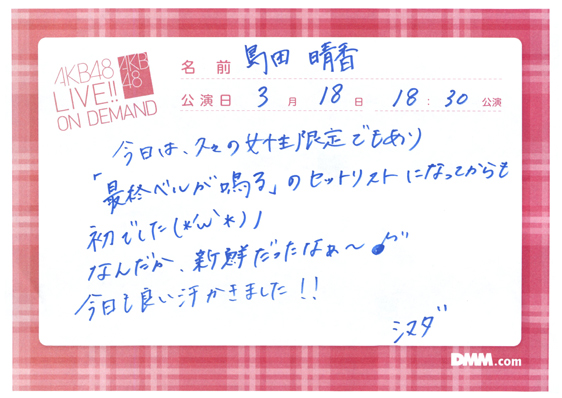 AKB48
LIVE!!
ON DEMAND
AKB
48
名 前 島田 晴香
公演日 3 月 18 日 18 : 30 公演
今日は、久々の女性限定でもあり
「最終ベルが鳴る」のセットリストになってからも
初でした(*'ω'*)ノ
なんだか、新鮮だったなぁ〜♪
今日も良い汗かきました!!
シマダ
DMM.com